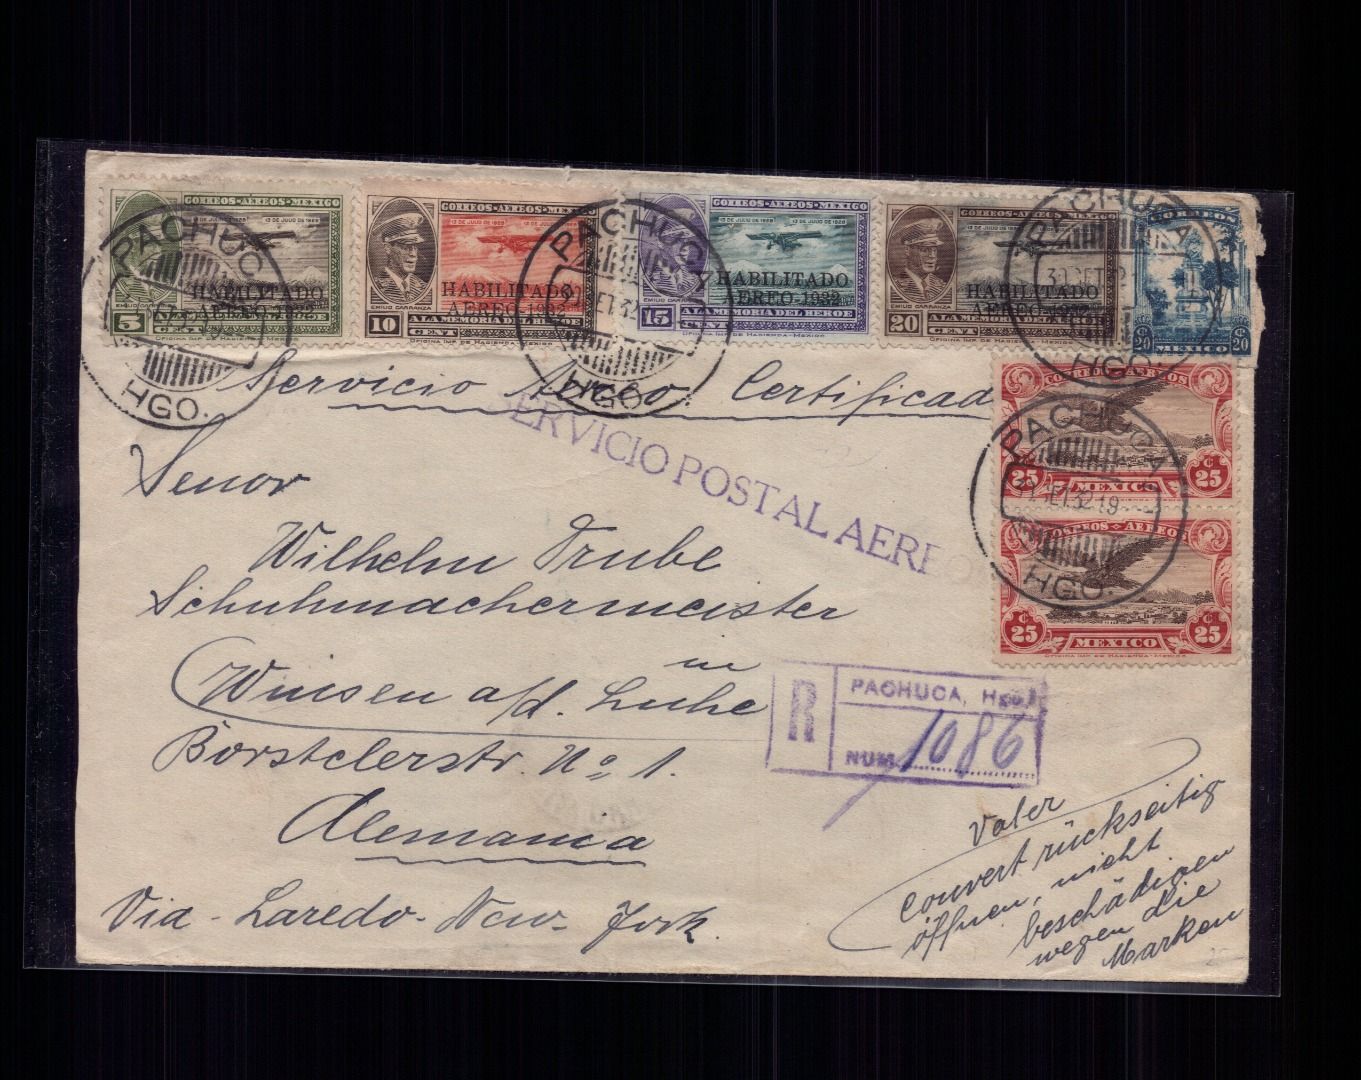 CORREOS-AEREOS-MEXICO
12 DE JULIO 1928
HABILITADO
AEREO-1932
EMILIO CARRANZA
5
CENT
OFICINA IMP. DE HACIENDA-MEXICO
CORREOS-AEREOS-MEXICO
12 DE JULIO 1928 13 DE JULIO DE 1928
HABILITADO
AEREO-1932
EMILIO CARRANZA
10
A LA MEMORIA DEL HEROE
CENT
OFICINA IMP. DE HACIENDA-MEXICO
CORREOS-AEREOS-MEXICO
12 DE JULIO 1928 13 DE JULIO DE 1928
HABILITADO
AEREO-1932
EMILIO CARRANZA
15
A LA MEMORIA DEL HEROE
CENT
OFICINA IMP. DE HACIENDA-MEXICO
CORREOS-AEREOS-MEXICO
12 DE JULIO 1928
HABILITADO
AEREO-1932
EMILIO CARRANZA
20
A LA MEMORIA DEL HEROE
CENT
OFICINA IMP. DE HACIENDA-MEXICO
CORREOS
20 MEXICO 20
PACHUCA
HGO.
PACHUCA
HGO.
PACHUCA
HGO.
Servicio Aereo Certificado
SERVICIO POSTAL AEREO
CORREOS AEREOS
25 MEXICO 25
CORREOS AEREOS
25 MEXICO 25
OFICINA IMP. DE HACIENDA-MEXICO
PACHUCA
HGO.
Senor
Wilhelm Trube
Schuhmachermeister
in
Winsen a/d. Luhe
Borstelerstr. No 1.
Alemania
Via - Laredo - New - York.
R
PACHUCA, Hgo.
NUM. 1086
Vater
Couvert rückseitig
öffnen, nicht
beschädigen
wegen die
Marken